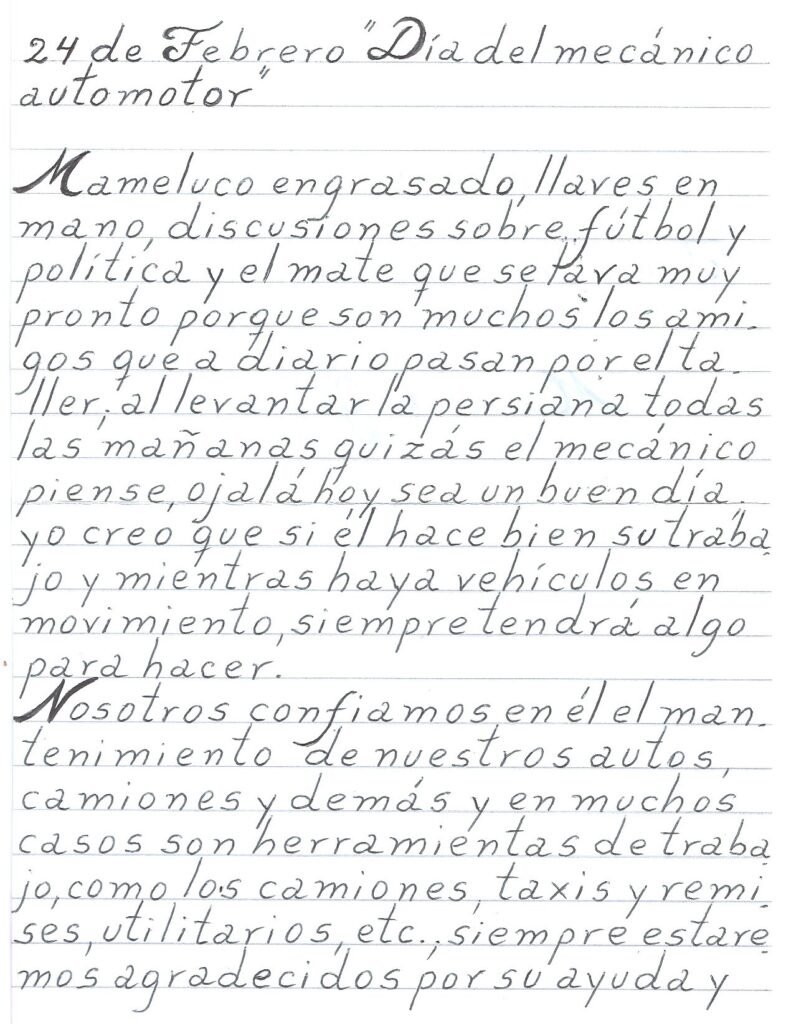 24 de Febrero "Día del mecánico
automotor"
Mameluco engrasado, llaves en
mano, discusiones sobre, fútbol y
política y el mate que se lava muy
pronto porque son muchos los ami-
gos que a diario pasan por el ta-
ller; al levantar la persiana todas
las mañanas quizás el mecánico
piense, ojalá hoy sea un buen día,
yo creo que si él hace bien su traba-
jo y mientras haya vehículos en
movimiento, siempre tendrá algo
para hacer.
Nosotros confiamos en él el man-
tenimiento de nuestros autos,
camiones y demás y en muchos
casos son herramientas de traba
jo, como los camiones, taxis y remi-
ses, utilitarios, etc., siempre estare
mos agradecidos por su ayuda y